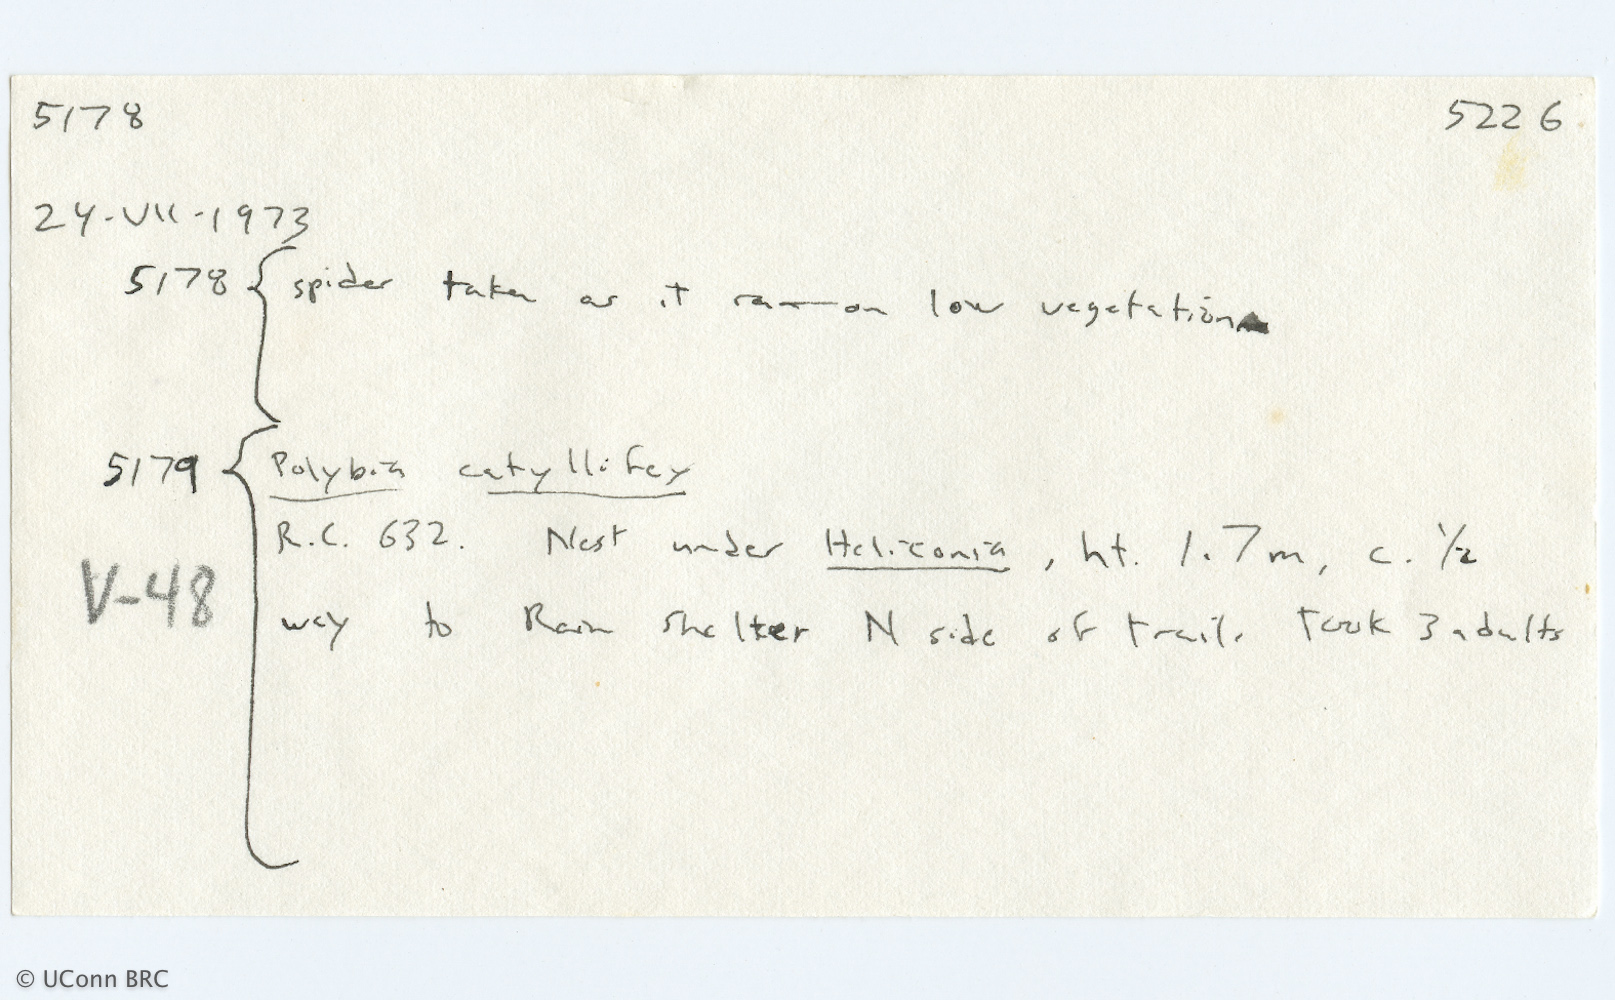 5178 5226
24-VII-1973
5178 { spider taken as it ran on low vegetation
5179 { Polybia catyllifex
R.C. 632. Nest under Heliconia, ht. 1.7m, c. 1/2
V-48
way to Rain shelter N side of trail. Took 3 adults
© UConn BRC